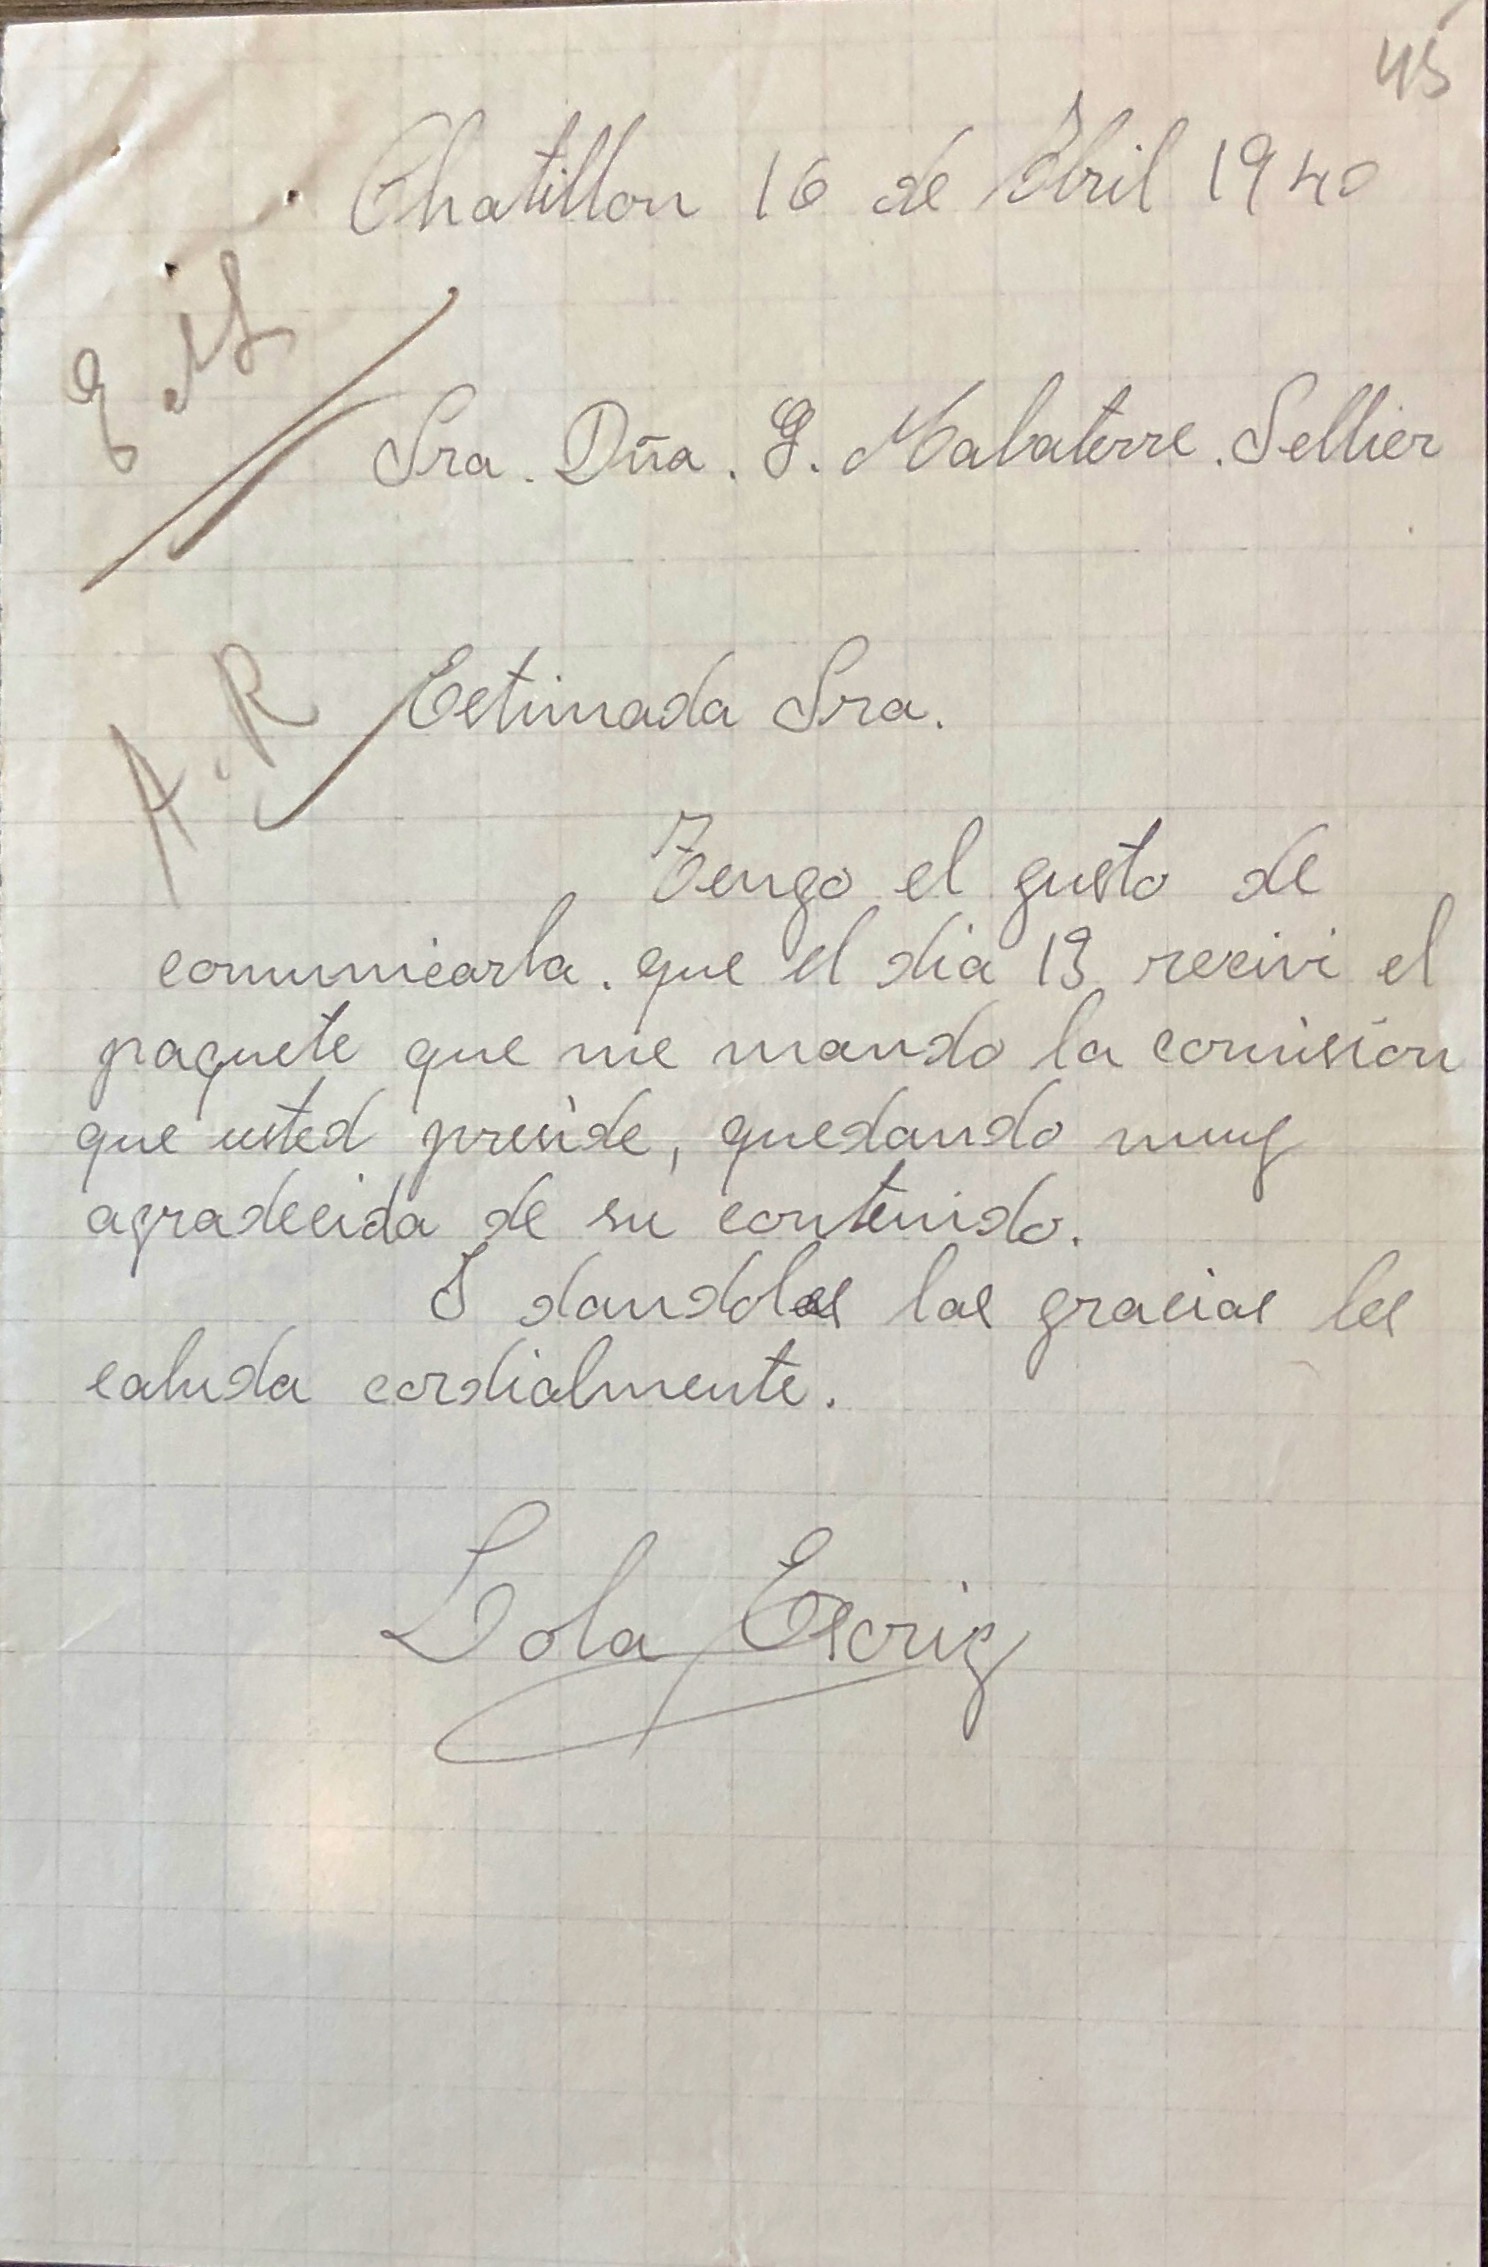 45
Chatillon 16 de Abril 1940
Sra. Dña. G. Malaterre. Sellier
A. R
Estimada Sra.
Tengo el gusto de
comunicarla. que el dia 13 recivi el
paquete que me mando la comisión
que usted preside, quedando muy
agradecida de su contenido.
I dandoles las gracias les
saluda cordialmente.
Lola Escrig